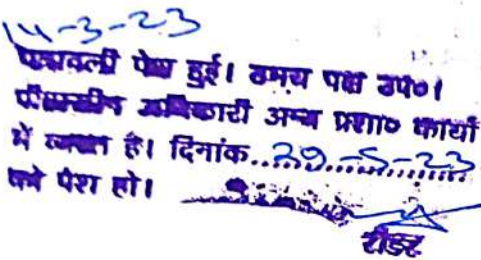 14-3-23
पत्रावली पेश हुई। उभय पक्ष उप०।
पीठासीन अधिकारी अन्य प्रशा० कार्यो
मे व्यस्त है। दिनांक..29-5-23............
को पेश हो।
रीडर